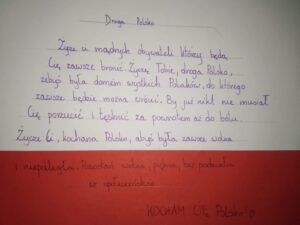 Droga Polsko
Życzę ci mądrych obywateli którzy będą
Cię zawsze bronić. Życzę Tobie, droga Polsko,
żebyś była domem wszystkich Polaków, do którego
zawsze będzie można wrócić. By już nikt nie musiał
Cię porzucić i tęsknić za powrotem aż do bólu.
Życzę Ci, kochana Polsko, abyś była zawsze wolna
i niepodległa. Pozostań wolna, piękna, bez podziałów
w społeczeństwie
KOCHAM CIĘ Polsko!